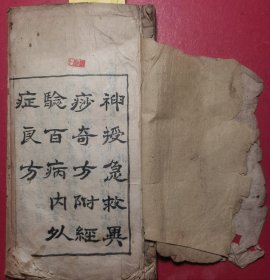 神授急救異
痧奇方附經
驗百病内外
症良方